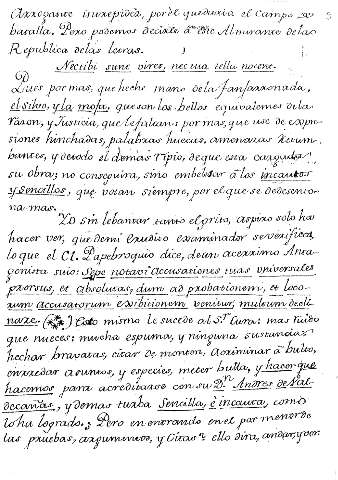 Arrogante intrepidéz, por el quedaria el Campo de
batalla. Pero podemos decirle à este Almirante de la
Republica de las letras.
Nectibi sunt vires, nec tua tella nocent.
Pues por mas, que heche mano de la fanfarronada,
el silvo, y la mofa, que son los bellos equivalentes de la
razon, y Justicia, que le faltan: por mas, que use de expre
siones hinchadas, palabras huecas, amenazas retum
bantes, y de todo el demas Tipio, de que esta cargada
su obra; no conseguira, sino embelesar â los incautos
y sencillos, que votan siempre, por el que se descasio
na mas.
Yo sin lebantar tanto el grito, aspiro solo ha
hacer ver, que de mi erudito examinador se verifica,
lo que el Cl. Papebroquio dice, de un acerrimo Anta
gonista suio: Sepe notavi accusationes tuas universales
prorsus, et absolutas, dum ad probationem, et loco
rum accusatorum exhibitionem venitur, multum decli
nare. Esto mismo le sucede al Sr. Cura: mas ruido
que nueces: mucha espuma, y ninguna sustancia:
hechar bravatas, citar de monton, acriminar â bulto,
enredar asuntos, y especies, meter bulla, y hacer que
hacemos para acreditarse con su Dn. Andres de Val
decañas, y demas turba Sencilla, è incauta, como
lo ha logrado; Pero en entrando en el por menor de
las pruebas, argumentos, y Citas: ello dira, andar, y ver